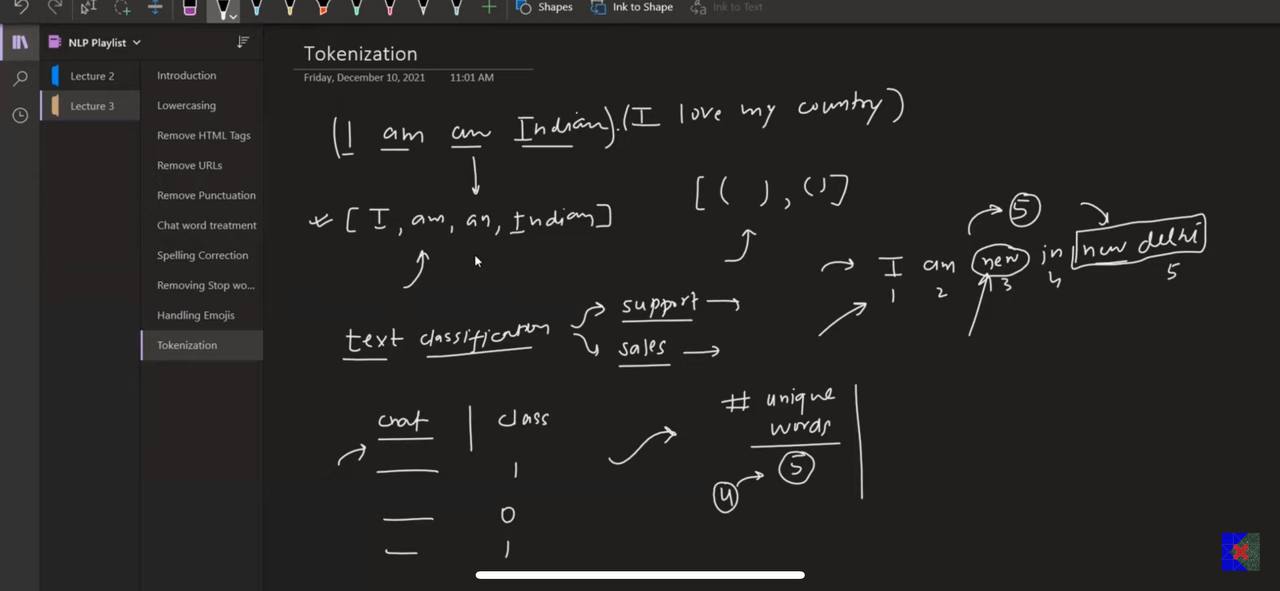 Shapes Ink to Shape Ink to Text
NLP Playlist
Lecture 2
Lecture 3
Introduction
Lowercasing
Remove HTML Tags
Remove URLs
Remove Punctuation
Chat word treatment
Spelling Correction
Removing Stop wo...
Handling Emojis
Tokenization
Tokenization
Friday, December 10, 2021 11:01 AM
(I am an Indian).(I love my country)
[I, am, an, Indian]
[( ), ()]
5
I am new in new delhi
1 2 3 4 5
text classification
support
sales
chat | class
1
0
1
# unique
words
5
4